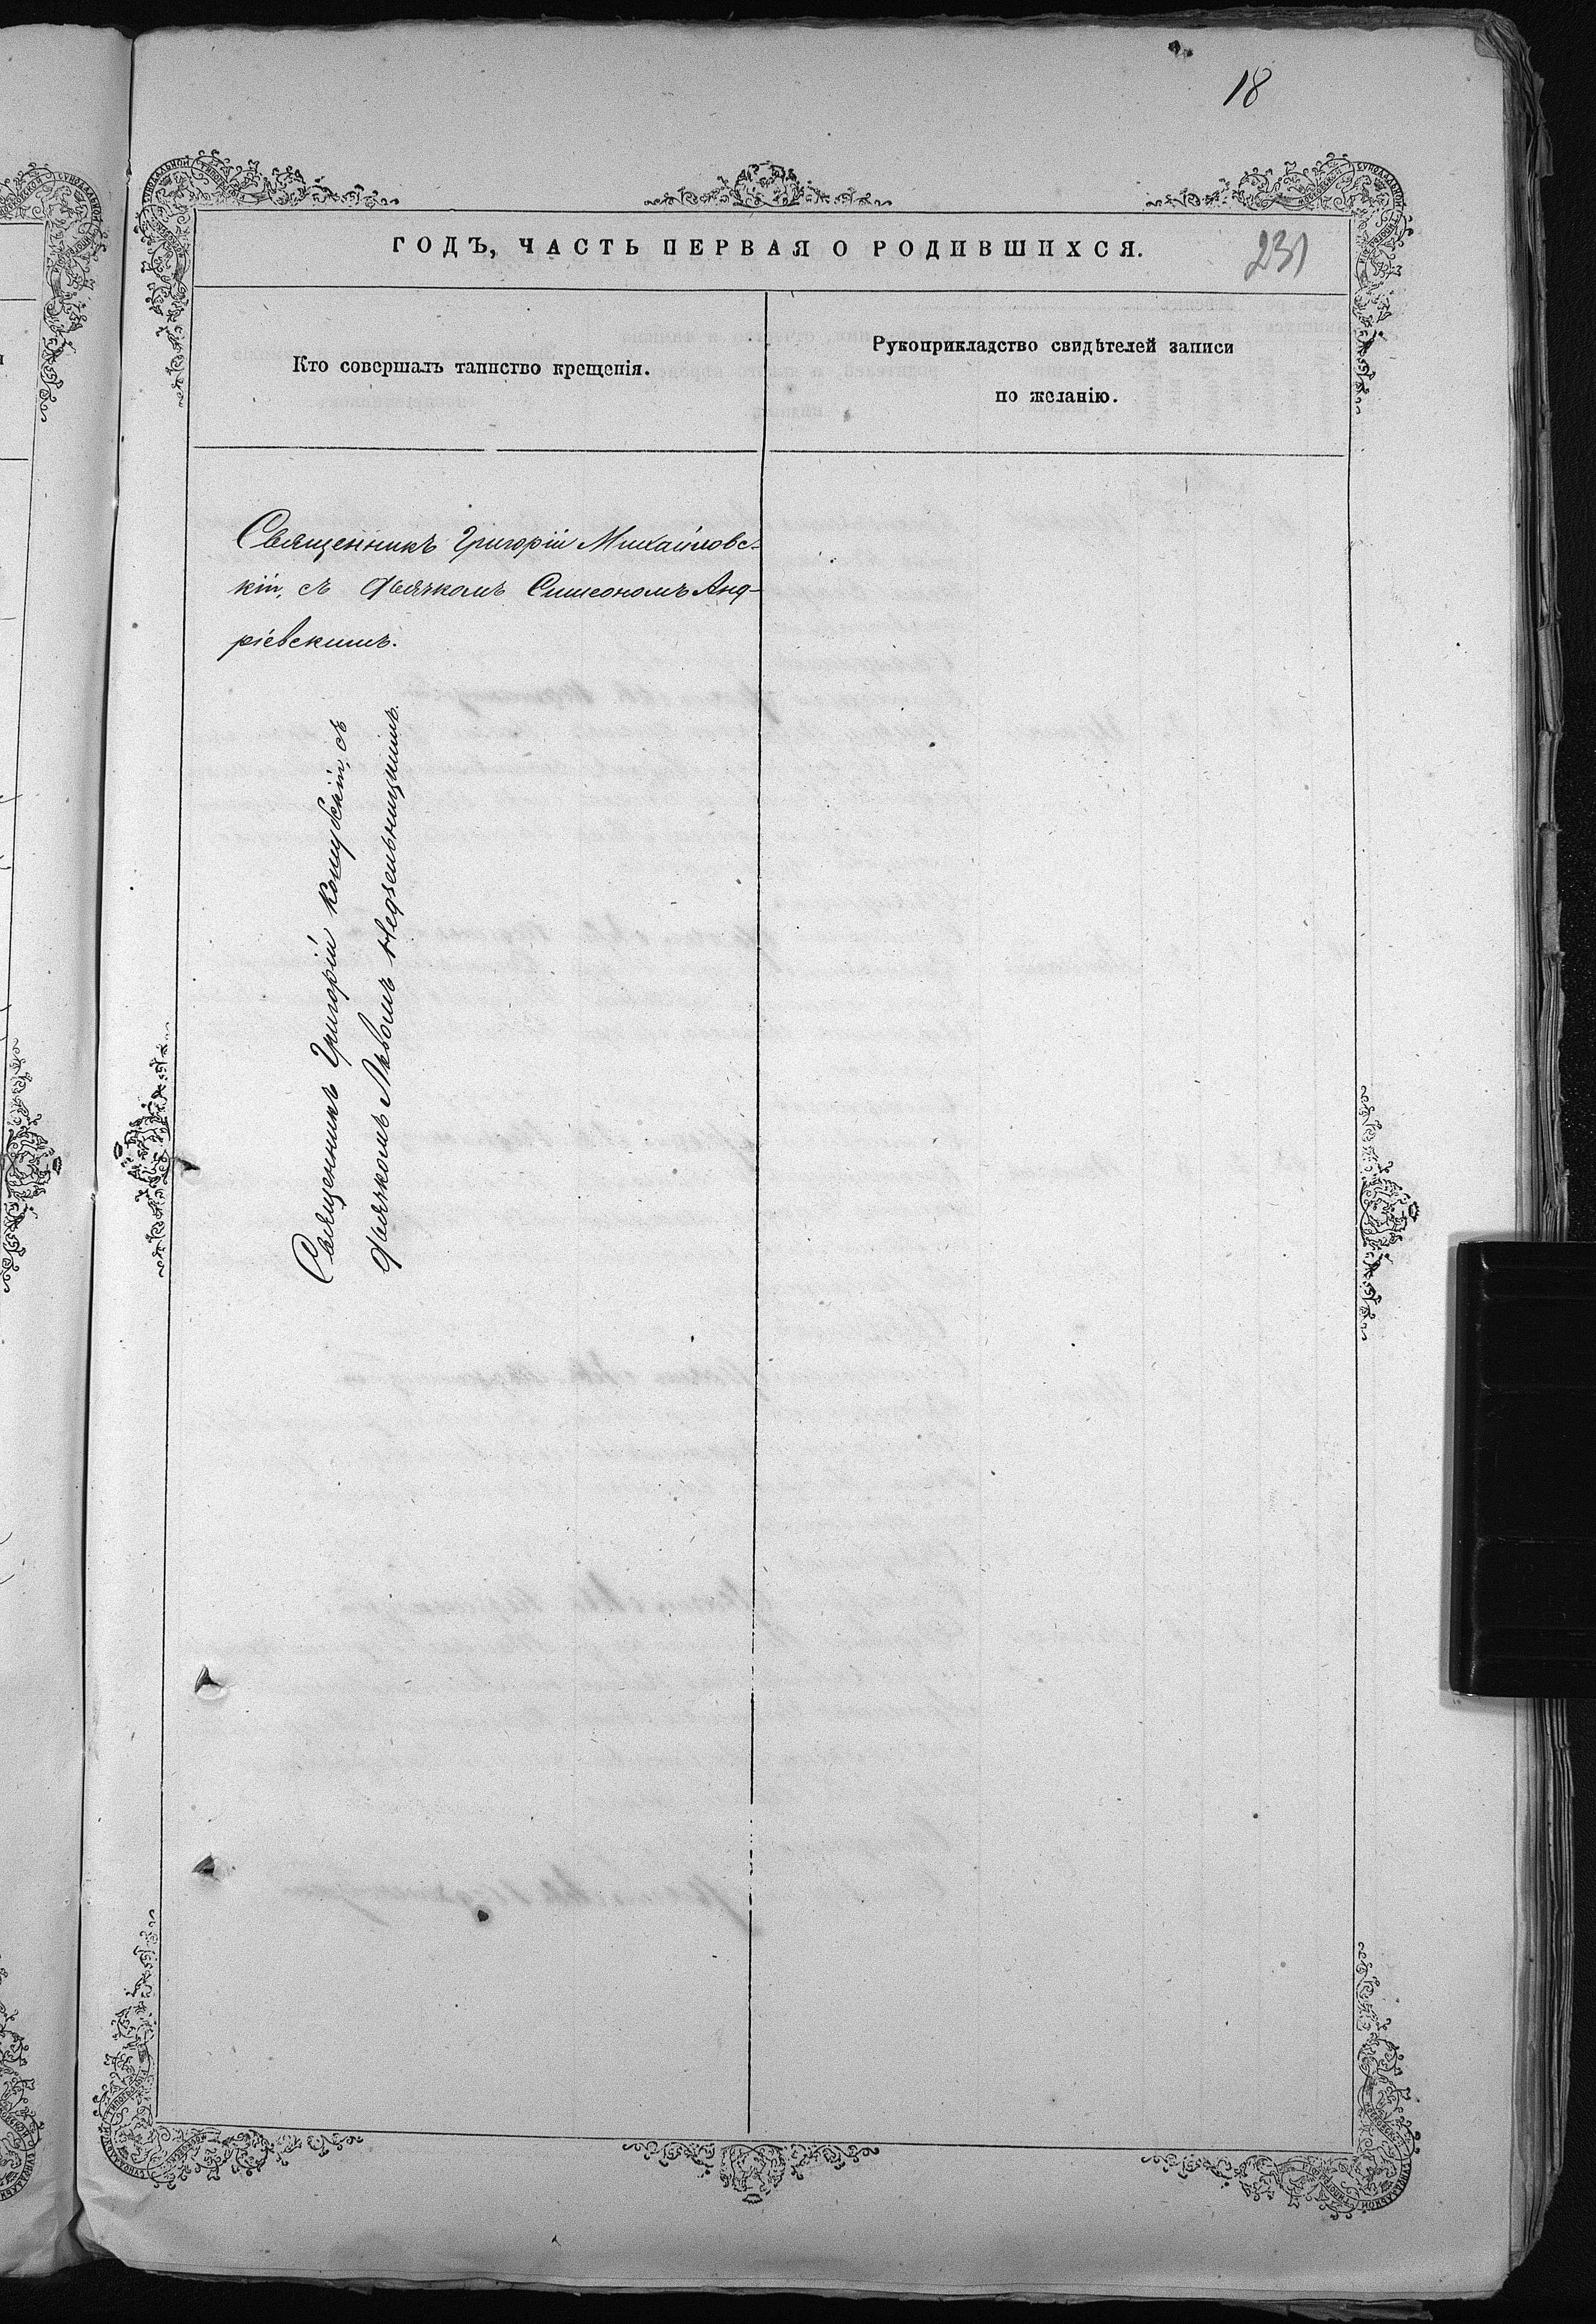 18
ГОДЪ, ЧАСТЬ ПЕРВАЯ О РОДИВШИХСЯ.
231
Кто совершалъ таинство крещенія.
Рукоприкладство свидѣтелей записи
по желанію.
Священникъ Григорій Михайловс-
кій, съ дьячкомъ Симеономъ Анд-
ріевскимъ.
Священникъ Григорій съ
дьячкомъ Львомъ Недзельницкимъ.